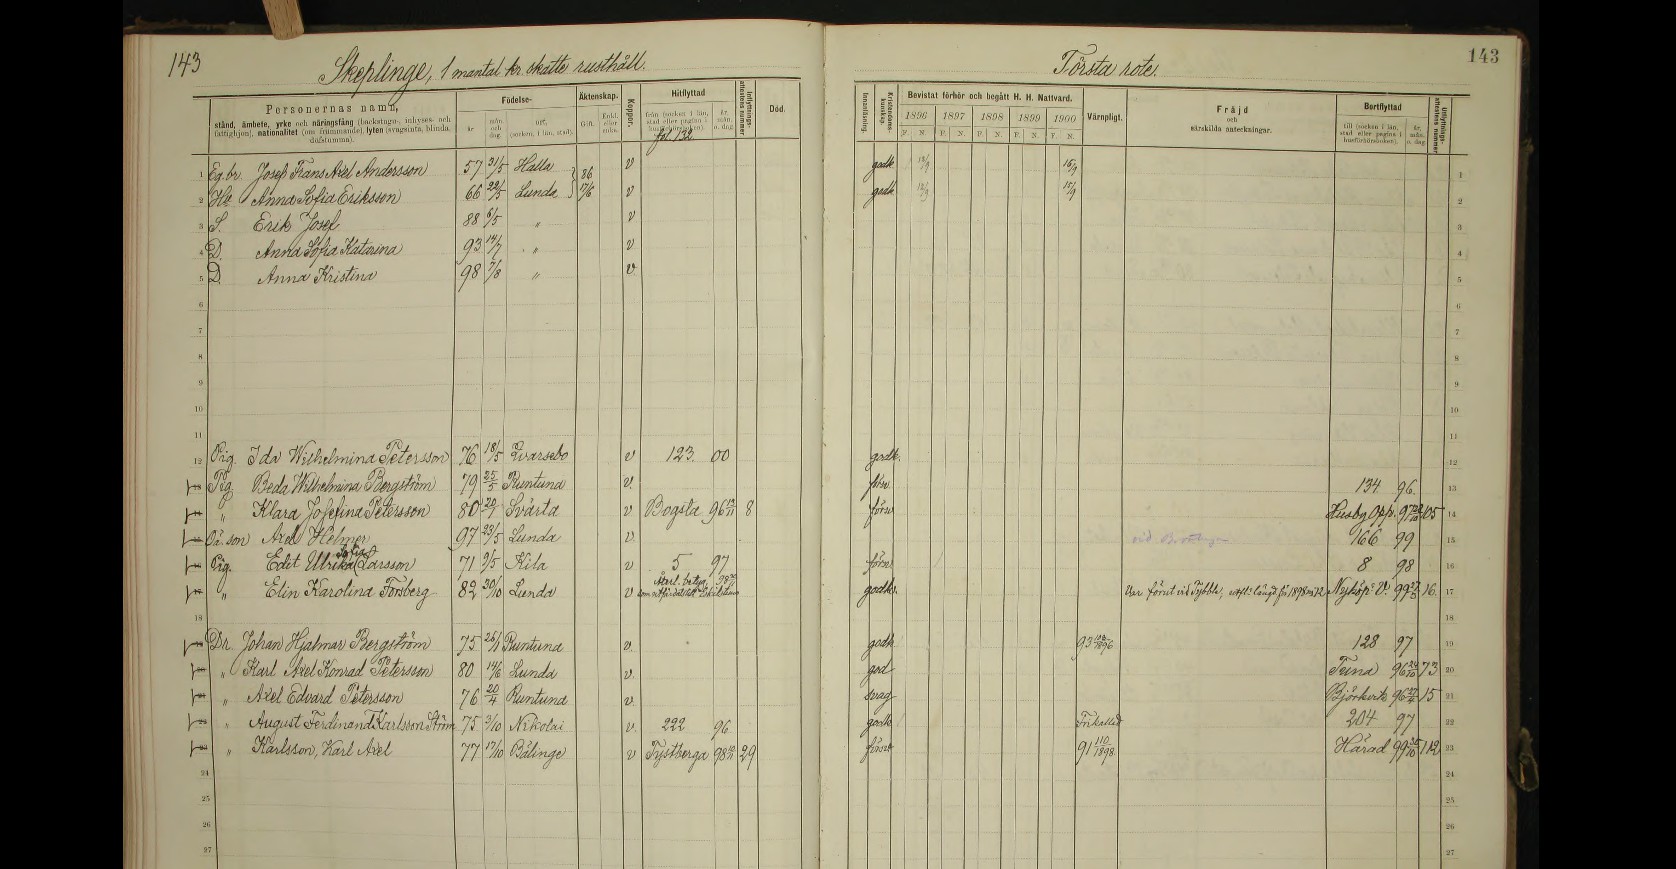 143
Skeplinge, 1 mantal kr. skatte rusthåll.
Personernas namn,
stånd, ämbete, yrke och näringsfång (backstugu-, inhyses- och
fattighjon), nationalitet (om främmande), lyten (svagsinta, blinda,
döfstumma).
Födelse-
år
mån. och dag.
ort. (socken i län, stad).
Äktenskap.
Gift.
Enkl. eller enka.
Koppor.
Hitflyttad
från (socken i län, stad eller pagina i husförhörsboken).
år, mån. o. dag.
fol. 132
Inflyttnings-attestens nummer
Död.
1 Eg. br. Josef Frans Axel Andersson 57 31/5 Halla } 86 v
2 Hu. Anna Sofia Eriksson 66 22/5 Lunda } 17/6 v
3 S. Erik Josef 88 6/5 " v
4 D. Anna Sofia Katarina 93 14/7 " v
5 D. Anna Kristina 98 7/8 " v
6
7
8
9
10
11
12 Pig. Ida Wilhelmina Petersson 76 18/5 Qvarsebo v 123. 00
13 Pig. Beda Wilhelmina Bergström 79 25/5 Runtuna v.
14 " Klara Josefina Petersson 80 20/1 Svärta v Bogsta 96 8
15 Oä. son Axel Helmer 97 23/5 Lunda v.
16 Pig. Edit Ulrika Sofia Larsson 71 9/5 Kila v 5 97
17 " Elin Karolina Forsberg 82 30/10 Lunda v
18
19 Dr. Johan Hjalmar Bergström 75 26/1 Runtuna v.
20 " Karl Axel Konrad Petersson 80 14/6 Lunda v.
21 " Axel Edvard Petersson 76 20/4 Runtuna v.
22 " August Ferdinand Karlsson Ström 75 3/10 Nikolai v. 222 96.
23 " Karlsson, Karl Axel 77 17/10 Bälinge v Tystberga 98 29
24
25
26
27
143
Första rote.
Innanläsning.
Kristendoms-kunskap.
Bevistat förhör och begått H. H. Nattvard.
1896 1897 1898 1899 1900
F. N. F. N. F. N. F. N. F. N.
Värnpligt.
Fräjd
och
särskilda anteckningar.
Bortflyttad
till (socken i län, stad eller pagina i husförhörsboken).
år, mån. o. dag.
Utflyttnings-attestens nummer
godk. 1
godk 2
3
4
5
6
7
8
9
10
11
godk. 12
förs. 134 96. 13
försv. Husby Opp. 97 105 14
166 99 15
försv 8 98 16
godk. Nyköp. V. 99 16. 17
18
godk 93 103/1896 128 97 19
god Tuna 96 73 20
svag Björkvik 96 15 21
godk Frikallad 204 97 22
försv 91 110/1898 Härad 99 112 23
24
25
26
27